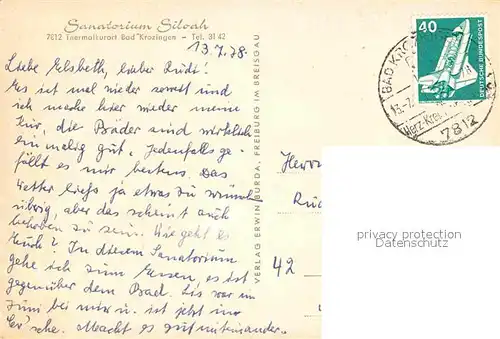 Sanatorium Siloah
7812 Thermalkurort Bad Krozingen - Tel. 3142
13.7.78.
Liebe Elsbeth, lieber Rudi!
Es ist mal wieder soweit und
ich mache hier wieder meine
Kur, die Bäder sind wirklich
einmalig gut, jedenfalls ge-
fällt es mir bestens. Das
Wetter ließ ja etwas zu wünschen
übrig, aber das scheint auch
behoben zu sein. Wie geht es
Euch? In diesem Sanatorium
gehe ich zum Essen, es ist
gegenüber dem Bad. war im
Juni bei mir u. ist jetzt im
Macht es gut miteinander.
VERLAG ERWIN BURDA, FREIBURG IM BREISGAU
40
DEUTSCHE BUNDESPOST
BAD KROZ
Herz-Kre
7812
Herrn
42
privacy protection
Datenschutz